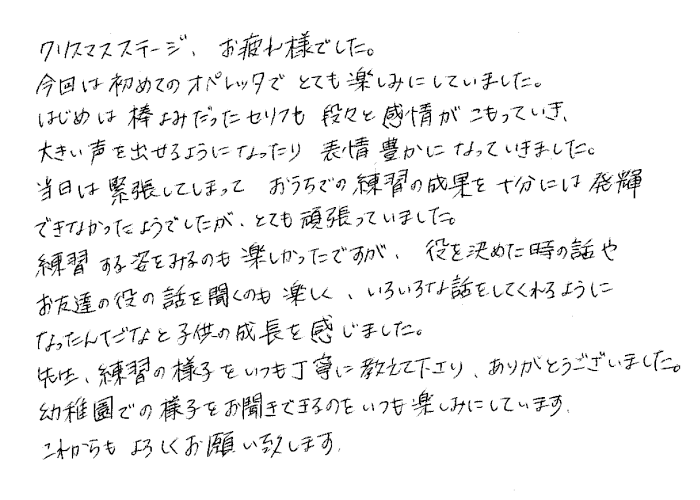 クリスマスステージ、お疲れ様でした。
今回は初めてのオペレッタでとても楽しみにしていました。
はじめは棒よみだったセリフも段々と感情がこもっていき、
大きい声を出せるようになったり表情豊かになっていきました。
当日は緊張してしまっておうちでの練習の成果を十分には発揮
できなかったようでしたが、とても頑張っていました。
練習する姿をみるのも楽しかったですが、役を決めた時の話や
お友達の役の話を聞くのも楽しく、いろいろな話をしてくれるように
なったんだなと子供の成長を感じました。
先生、練習の様子をいつも丁寧に教えて下さり、ありがとうございました。
幼稚園での様子をお聞きできるのをいつも楽しみにしています。
これからもよろしくお願い致します。